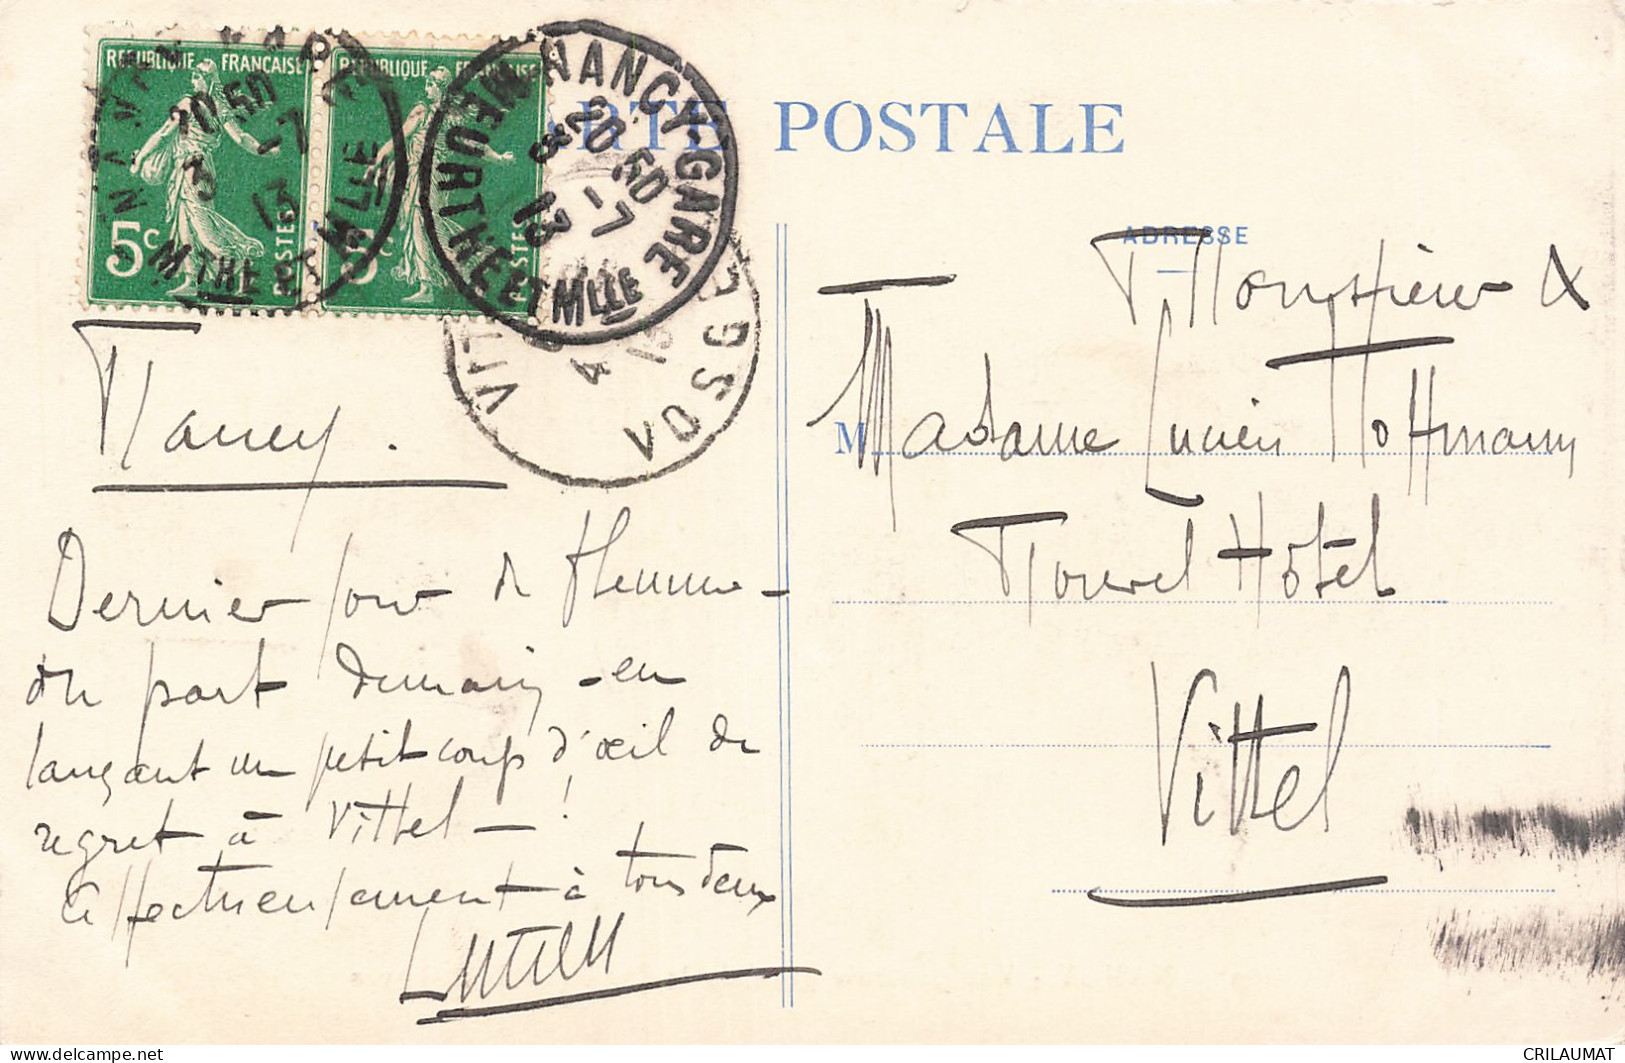 REPUBLIQUE FRANCAISE
REPUBLIQUE FRANCAISE
5c POSTES
5c POSTES
NANCY-GARE
20 50
3 -7
13
MTHE ET MLLE
NANCY-GARE
20 50
3 -7
13
MEURTHE ET MLLE
VIT
4
13
VOSGE
CARTE POSTALE
ADRESSE
Monsieur &
M Madame Lucien Hoffmann
Nouvel Hôtel
Vittel
Nancy.
Dernier jour de flemme -
on part demain - en
lançant un petit coup d'œil de
regret à Vittel - !
affectueusement à tous deux
delcampe.net
CRILAUMAT